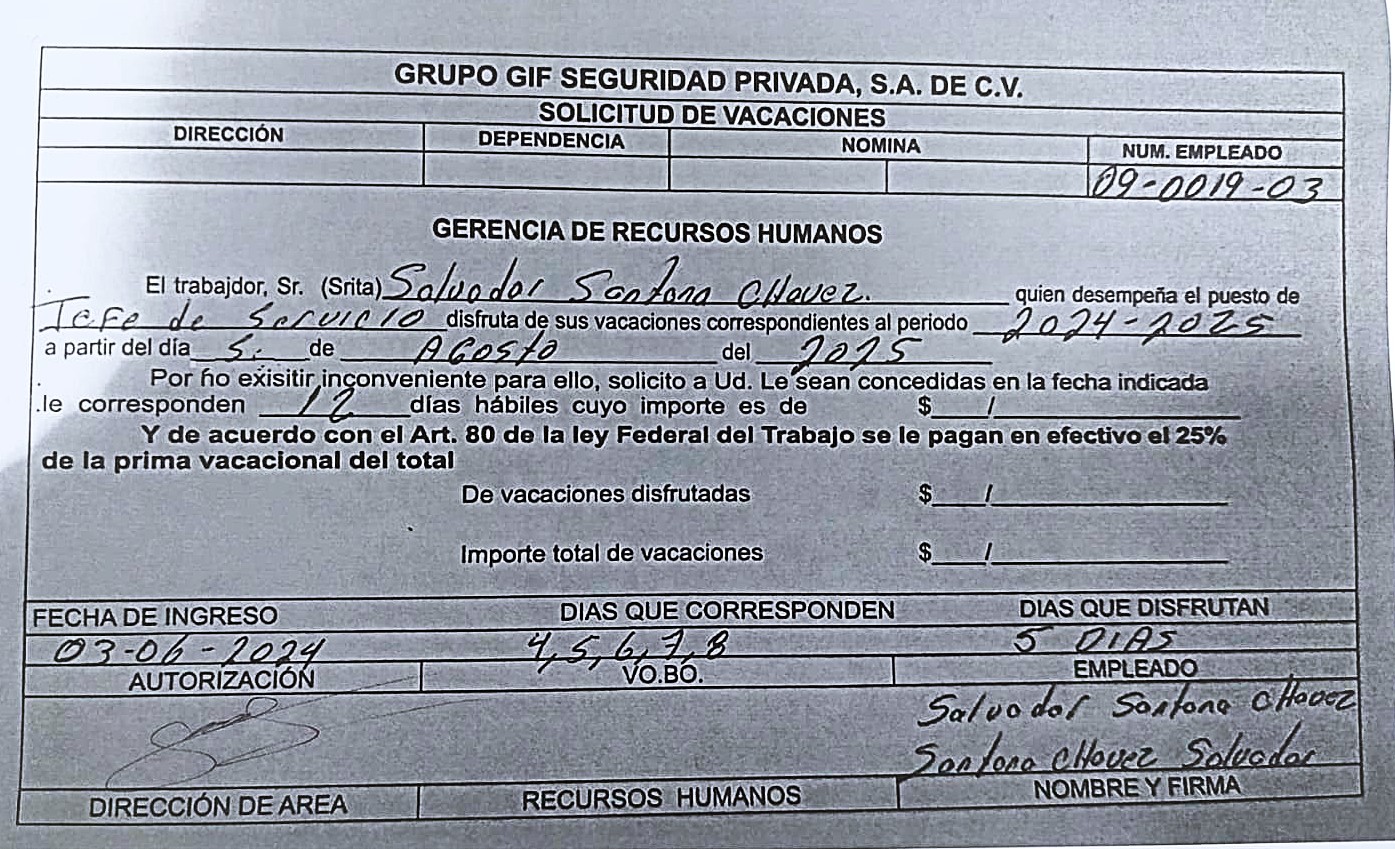 GRUPO GIF SEGURIDAD PRIVADA, S.A. DE C.V.
SOLICITUD DE VACACIONES
DIRECCIÓN DEPENDENCIA NOMINA NUM. EMPLEADO
09-0019-03
GERENCIA DE RECURSOS HUMANOS
El trabajdor, Sr. (Srita) Salvador Santana CHavez. quien desempeña el puesto de
Jefe de Servicio disfruta de sus vacaciones correspondientes al periodo 2024-2025
a partir del día 5. de AGosto del 2025
Por ño exisitir inconveniente para ello, solicito a Ud. Le sean concedidas en la fecha indicada
.le corresponden 12 días hábiles cuyo importe es de $ /
Y de acuerdo con el Art. 80 de la ley Federal del Trabajo se le pagan en efectivo el 25%
de la prima vacacional del total
De vacaciones disfrutadas $ /
Importe total de vacaciones $ /
FECHA DE INGRESO DIAS QUE CORRESPONDEN DIAS QUE DISFRUTAN
03-06-2024 4,5,6,7,8 5 DIAS
AUTORIZACIÓN VO.BO. EMPLEADO
Salvador Santana CHavez
Santana CHavez Salvador
DIRECCIÓN DE AREA RECURSOS HUMANOS NOMBRE Y FIRMA